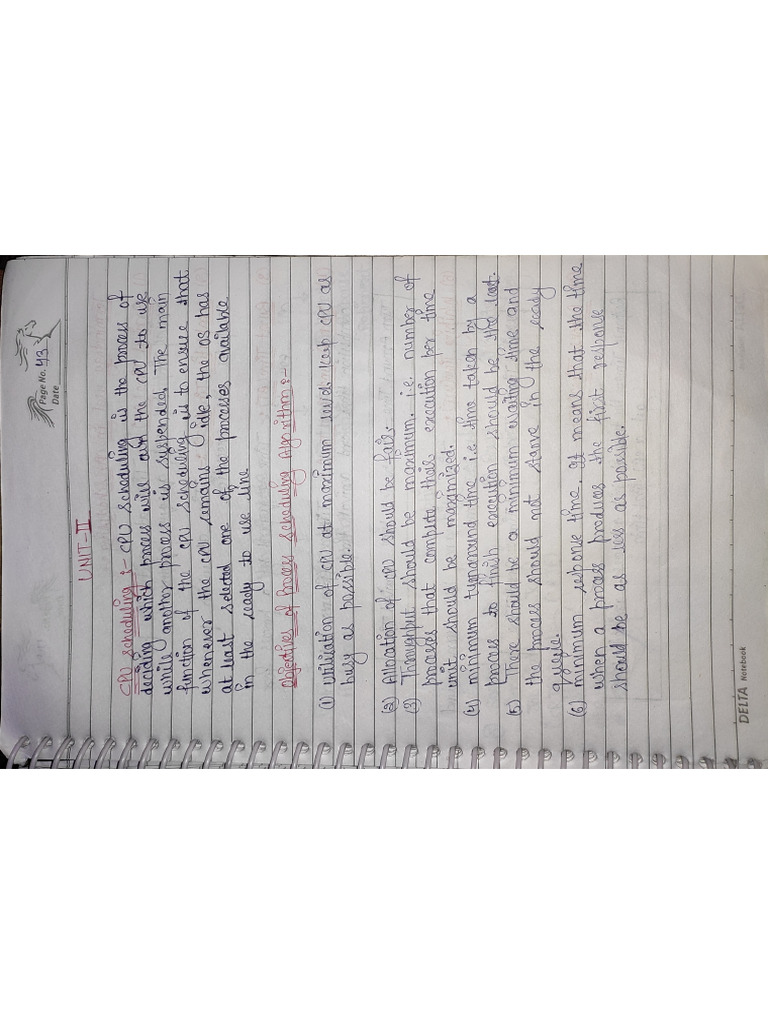 Page No. 43
Date
UNIT-II
CPU scheduling :- CPU scheduling is the process of
deciding which process will own the CPU to use
while another process is suspended. The main
function of the CPU scheduling is to ensure that
whenever the CPU remains idle, the OS has
at least selected one of the processes available
in the ready to use line
Objectives of Process scheduling Algorithm :-
(1) Utilization of CPU at maximum level. Keep CPU as
busy as possible.
(2) Allocation of CPU should be fair.
(3) Throughput should be maximum. i.e. number of
processes that complete their execution per time
unit should be maximized.
(4) minimum turnaround time i.e. time taken by a
process to finish execution should be the least.
(5) There should be a minimum waiting time and
the process should not starve in the ready
queue.
(6) minimum response time. It means that the time
when a process produces the first response
should be as less as possible.
DELTA Notebook